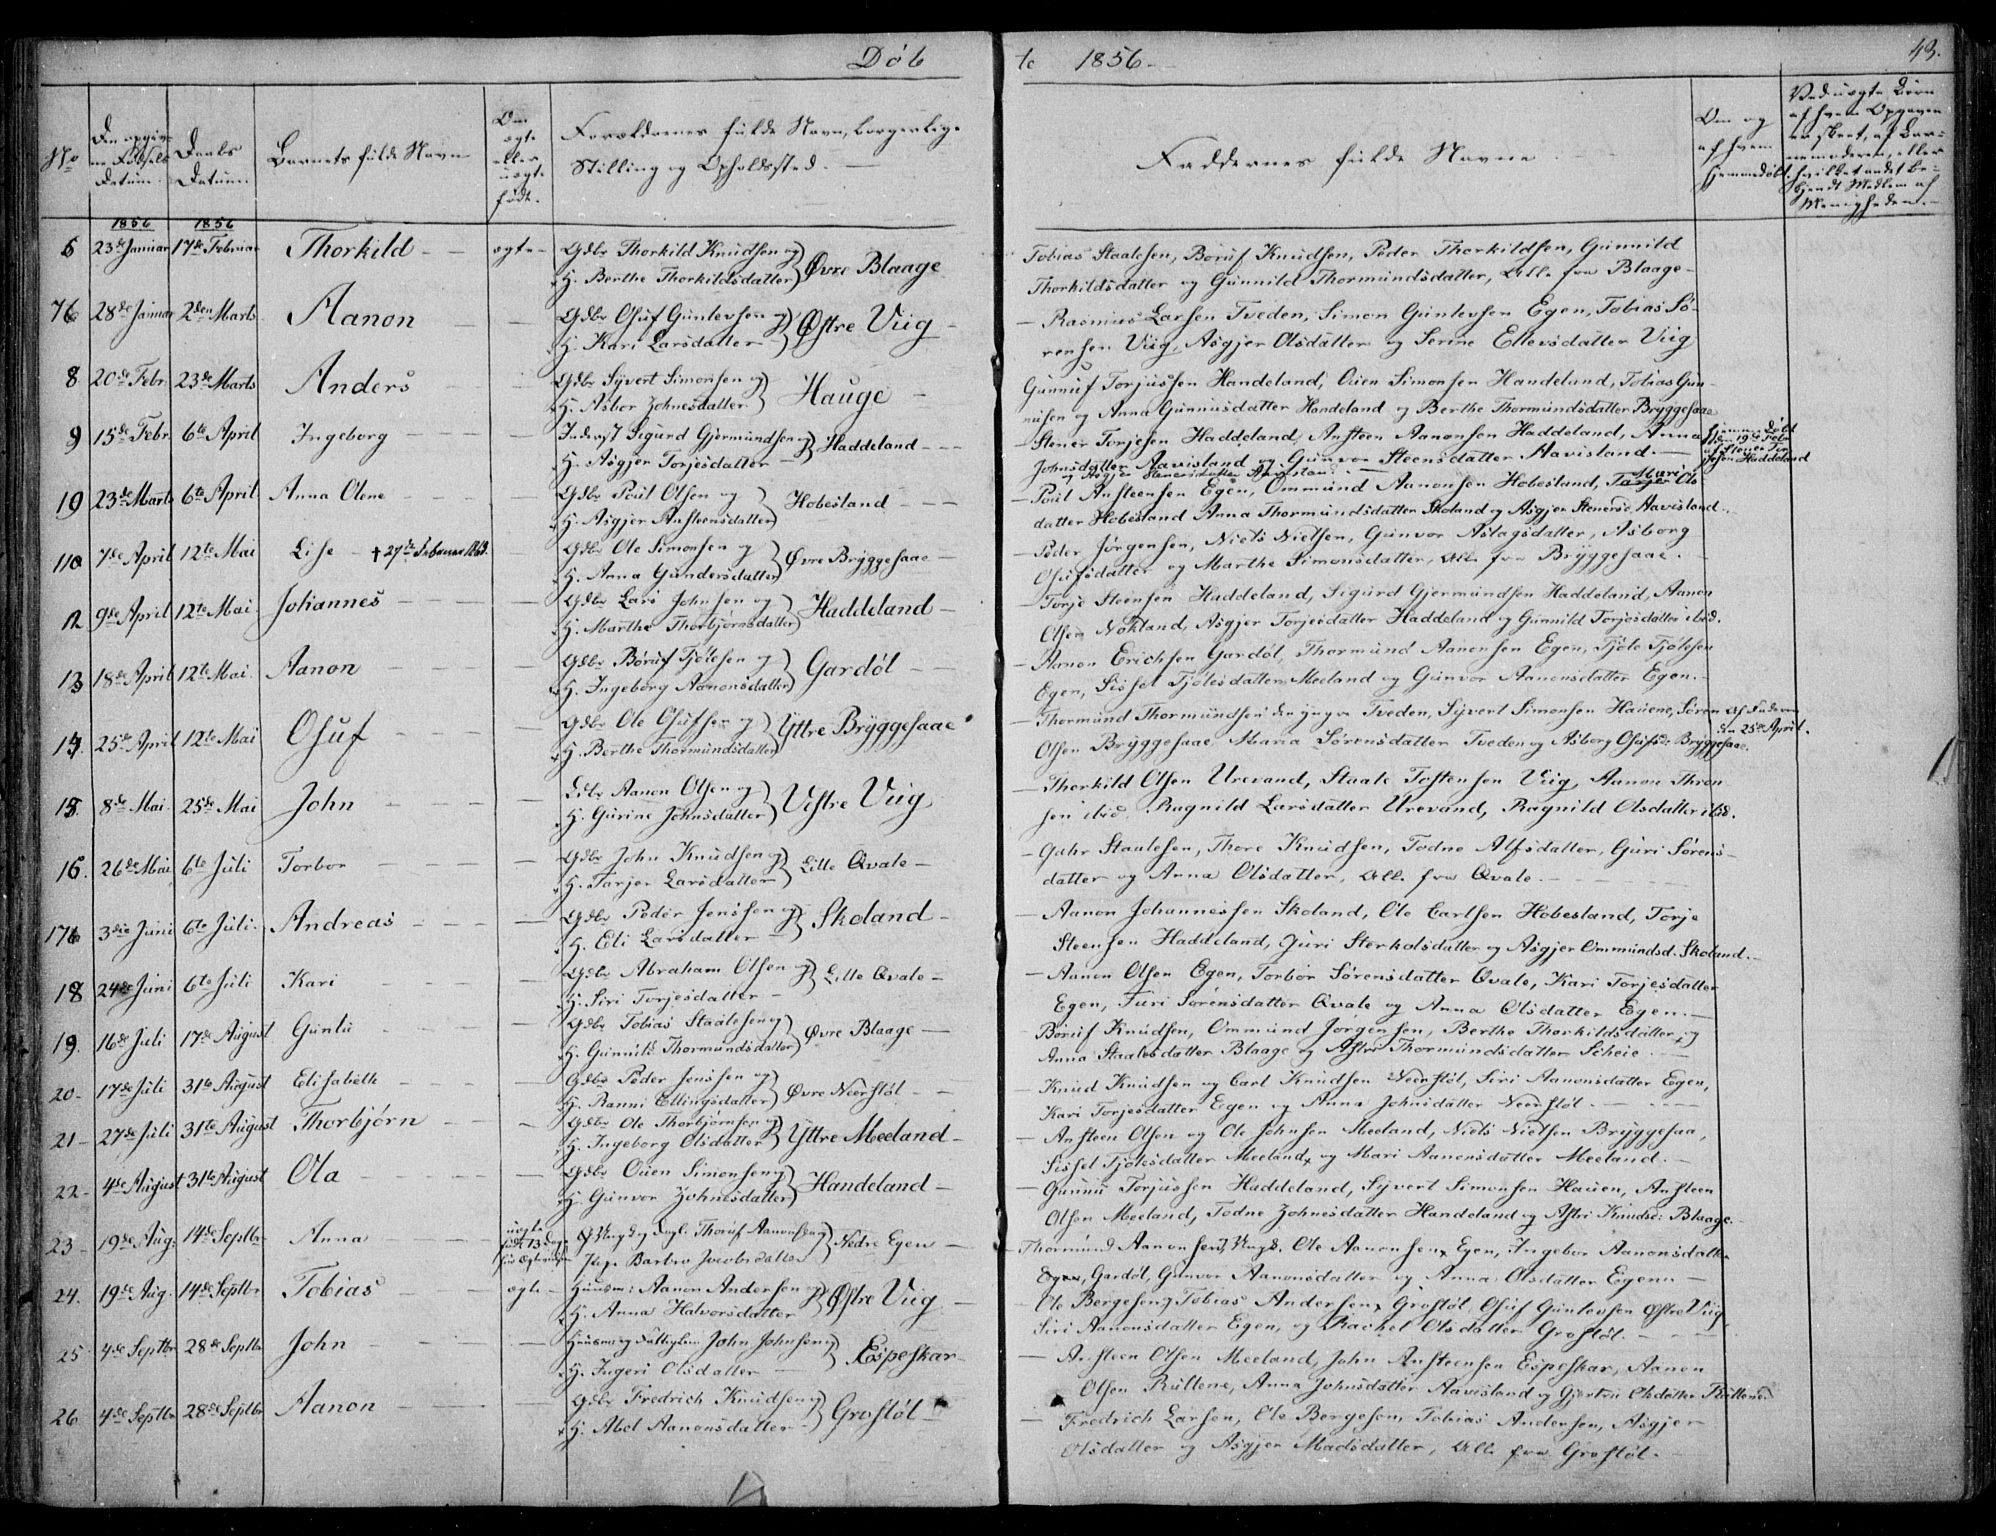 Døb
te 1856.
43.
No
Den opgivne Fødsels Datum.
Daabs Datum.
Barnets fulde Navn
Om ægte eller uægte født.
Forældrenes fulde Navn, borgerlige Stilling og Opholdssted.
Faddernes fulde Navne
Om og af hvem hjemmedøbt.
Ved uægte Børn af hvem Opgaven er skeet, af Barnemoderen, eller hvilket andet bekjendt Medlem af Menigheden.
1856 1856
23de Januar 17de Februar Thorkild ægte Gdbr Thorkild Knudsen og H. Berthe Thorkildsdatter Øvre Blaage
Tobias Staalesen, Børuf Knudsen, Peder Thorkildsen, Gunnild
Thorkildsdatter og Gunnild Thormundsdatter, alle fra Blaage
28de Januar 2den Marts Aanon Gdbr Osuf Gunlevsen og H. Kari Larsdatter Østre Viig
Rasmus Larsen Tveden, Simon Gunlevsen Egen, Tobias Sø-
rensen Viig, Asgjer Olsdatter og Serine Ellevsdatter Viig
8 20de Febr. 23de Marts Anders Gdbr Syvert Simonsen og H. Asbor Johnesdatter Hauge
Gunnuf Torjussen Handeland, Ouen Simonsen Handeland, Tobias Gun-
nusen og Anna Gunnusdatter Handeland og Berthe Thormundsdatter Bryggesaae
9 15de Febr. 6te April Ingeborg Inderst Sigurd Gjermundsen og H. Asgjer Torjesdatter Haddeland
Stener Torjesen Haddeland, Ansteen Aanonsen Haddeland, Anna
Johnsdatter Aavisland og Gunvor Steensdatter Aavisland.
og Asgjer Stenersdatter Aavisland
Hjemmedøbt den 19de Febr af Stener Torjesen Haddeland
23de Marts 6te April Anna Olene Gdbr Poul Olsen og H. Asgjer Ansteensdatter Hobesland
Poul Ansteensen Egen, Ommund Aanonsen Hobesland, Mari Ols
datter Hobesland Anna Thormundsdatter Skoland og Asgjer Stenersd. Aavisland.
7de April 12te Mai Lise † 27de Februar Gdbr Ole Simonsen og H. Anna Gundersdatter Øvre Bryggesaae
Peder Jørgensen, Niels Nielsen, Gunvor Aslagsdatter, Asborg
Osufsdatter og Marthe Simonsdatter, alle fra Bryggesaae.
12 9de April 12te Mai Johannes Gdbr Lars Johnsen og H. Marthe Thorbjørnsdatter Haddeland
Torje Steensen Haddeland, Sigurd Gjermundsen Haddeland, Aanon
Olsen Nøkland, Asgjer Torjesdatter Haddeland og Gunnild Torjesdatter ibid.
13 18de April 12te Mai. Aanon Gdbr Børuf Tjølesen og H. Ingeborg Aanonsdatter Gardøl
Aanon Erichsen Gardøl, Thormund Aanonsen Egen, Tjøle Tjølesen
Egen, Sissel Tjølesdatter Meeland og Gunvor Aanonsdatter Egen.
14. 25de April 12te Mai Osuf Gdbr Ole Osufsen og H. Berthe Thormundsdatter Yttre Bryggesaae
Thormund Thormundsen den yngre Tveden, Syvert Simonsen Hauene, Søren
Olsen Bryggesaae Maria Sørensdatter Tveden og Asborg Osufsd: Bryggesaae.
den 25de April.
15. 8de Mai. 25de Mai John Gdbr Aanon Olsen og H. Gurine Johnsdatter Vestre Viig
Thorkild Olsen Urevand, Staale Tostensen Viig, Aanon Thron
sen ibid. Ragnild Larsdatter Urevand, Ragnild Olsdatter ibid.
16. 26de Mai 6te Juli Torbor Gdbr John Knudsen og H. Tarjer Larsdatter Lille Qvale
Gahr Staalesen, Thore Knudsen, Todne Alfsdatter, Guri Sørens-
datter og Anna Olsdatter, alle fra Qvale.
3die Juni 6te Juli. Andreas Gdbr Peder Jenssen og H. Eli Larsdatter Skoland
Aanon Johannessen Skoland, Ole Carlsen Hobesland, Torje
Steensen Haddeland, Juri Sterkolsdatter og Asgjer Ommundsd. Skoland.
18 24de Juni 6te Juli Kari Gdbr Abraham Olsen og H. Siri Torjesdatter Lille Qvale
Aanon Olsen Egen, Torbor Sørensdatter Qvale, Kari Torjesdatter
Egen, Juri Sørensdatter Qvale og Anna Olsdatter Egen.
19. 16de Juli 17de August Gunlu Gdbr Tobias Staalesen og H. Gunnild Thormundsdatter Øvre Blaage
Børuf Knudsen, Ommund Jørgensen, Berthe Thorkildsdatter, og
Anna Staalesdatter Blaage og Astri Thormundsdatter Scheie.
20. 17de Juli 31te August Elisabeth Gdbr Peder Jenssen og H. Ranni Ellingsdatter Øvre Neerstøl
Knud Knudsen og Carl Knudsen Neerstøl, Siri Aanonsdatter Egen,
Kari Torjesdatter Egen og Anna Johnsdatter Neerstøl
21 27de Juli 31te August Thorbjørn Gdbr Ole Thorbjørnsen og H. Ingeborg Olsdatter Yttre Meeland
Ansteen Olsen og Ole Johnsen Meeland, Niels Nielsen Bryggesaa,
Sissel Tjølesdatter Meeland, og Mari Aanonsdatter Meeland.
22 4de August 31te August Ola Gdbr Ouen Simonsen og H. Gunvor Johnesdatter Handeland
Gunnu Torjussen Haddeland, Syvert Simonsen Hauen, Ansteen
Olsen Meeland, Todne Johnesdatter Handeland og Astri Knudsd: Blaage.
23 19de Aug: 14de Septbr Anna uægte Ungk. Thoruf Aanonsen og Pige Barbro Jacobsdatter Nedre Egen
Thormund Aanonsen, Ungk. Ole Aanonsen, Egen, Ingebor Aanonsdatter
Gardøl, Gunvor Aanonsdatter og Anna Olsdatter Egen
24. 19de Aug. 14de Septbr Tobias ægte Huusm: Aanon Andersen og H. Anna Halvorsdatter Østre Viig
Ole Bergesen, Tobias Andersen, Grostøl, Osuf Gunlevsen Østre Viig
Siri Aanonsdatter Egen, og Rachel Olsdatter Grostøl.
25 4de Septbr 28de Septbr John Huusm: og John Johnsen og H. Ingeri Olsdatter Espeskar
Ansteen Olsen Meeland, John Ansteensen Espeskar, Aanon
Olsen Rullene, Anna Johnsdatter Aavisland og Gjertru Olsdatter Rullene.
26 4de Septbr 28de Septbr Aanon Gdbr Fredrich Knudsen og H. Abel Aanonsdatter Grostøl
Fredrich Larsen, Ole Bergesen, Tobias Andersen, Asgjer
Olsdatter og Asgjer Madsdatter, alle fra Grostøl.